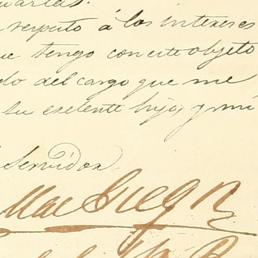 respeto á los intereses
que tengo con este objeto
do del cargo que me
su exelente hijo, y mi
Servidor
Mac Gregor